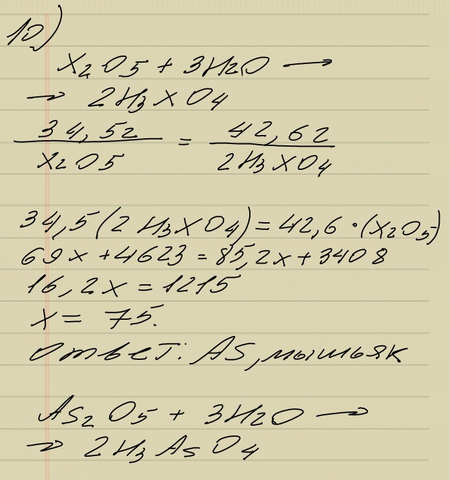 10)
X₂O5 + 3H₂O →
→ 2H₃XO₄
34,5г / X₂O5 = 42,6г / 2H₃XO₄
34,5(2H₃XO₄) = 42,6·(X₂O₅)
69x + 4623 = 85,2x + 3408
16,2x = 1215
x = 75.
Ответ: As, мышьяк
As₂O5 + 3H₂O →
→ 2H₃AsO₄